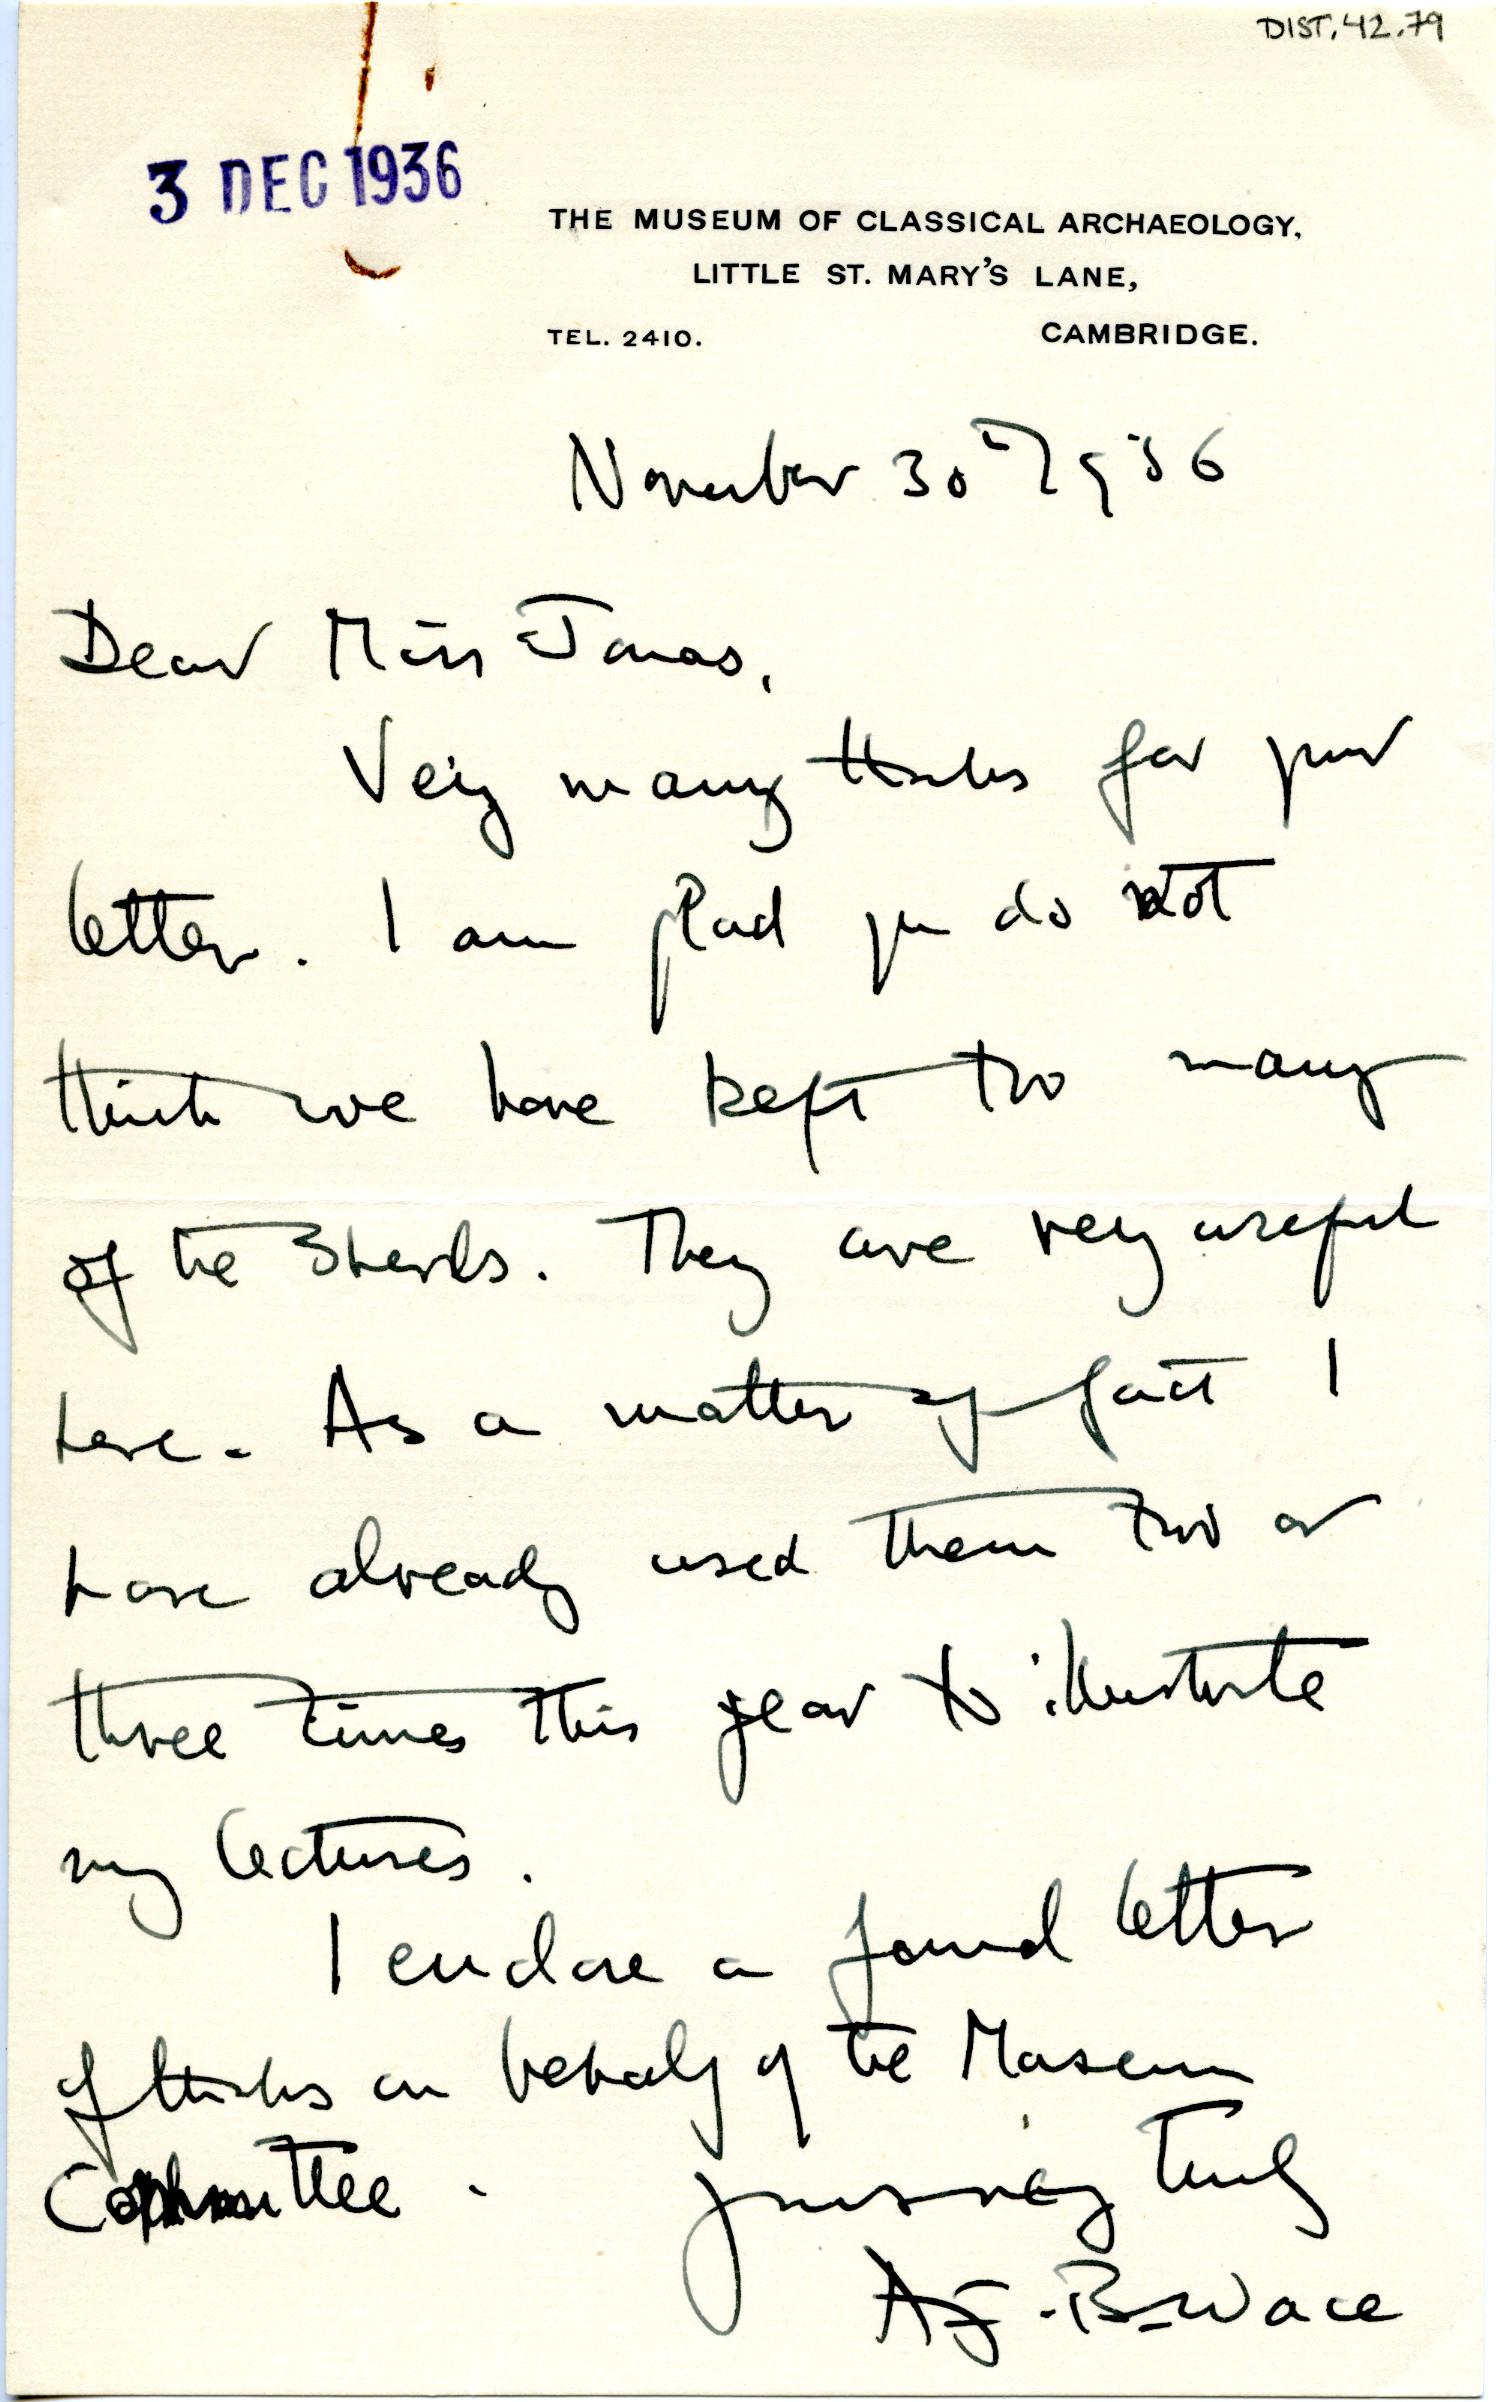 DIST. 42.79
3 DEC 1936
THE MUSEUM OF CLASSICAL ARCHAEOLOGY,
LITTLE ST. MARY'S LANE,
TEL. 2410. CAMBRIDGE.
November 30th 1936
Dear Miss Jonas,
Very many thanks for your
letter. I am glad you do not
think we have kept too many
of the sherds. They are very useful
here. As a matter of fact I
have already used them two or
three times this year to illustrate
my lectures.
I enclose a formal letter
of thanks on behalf of the Museum
Committee.
yours very truly
A.J.B. Wace